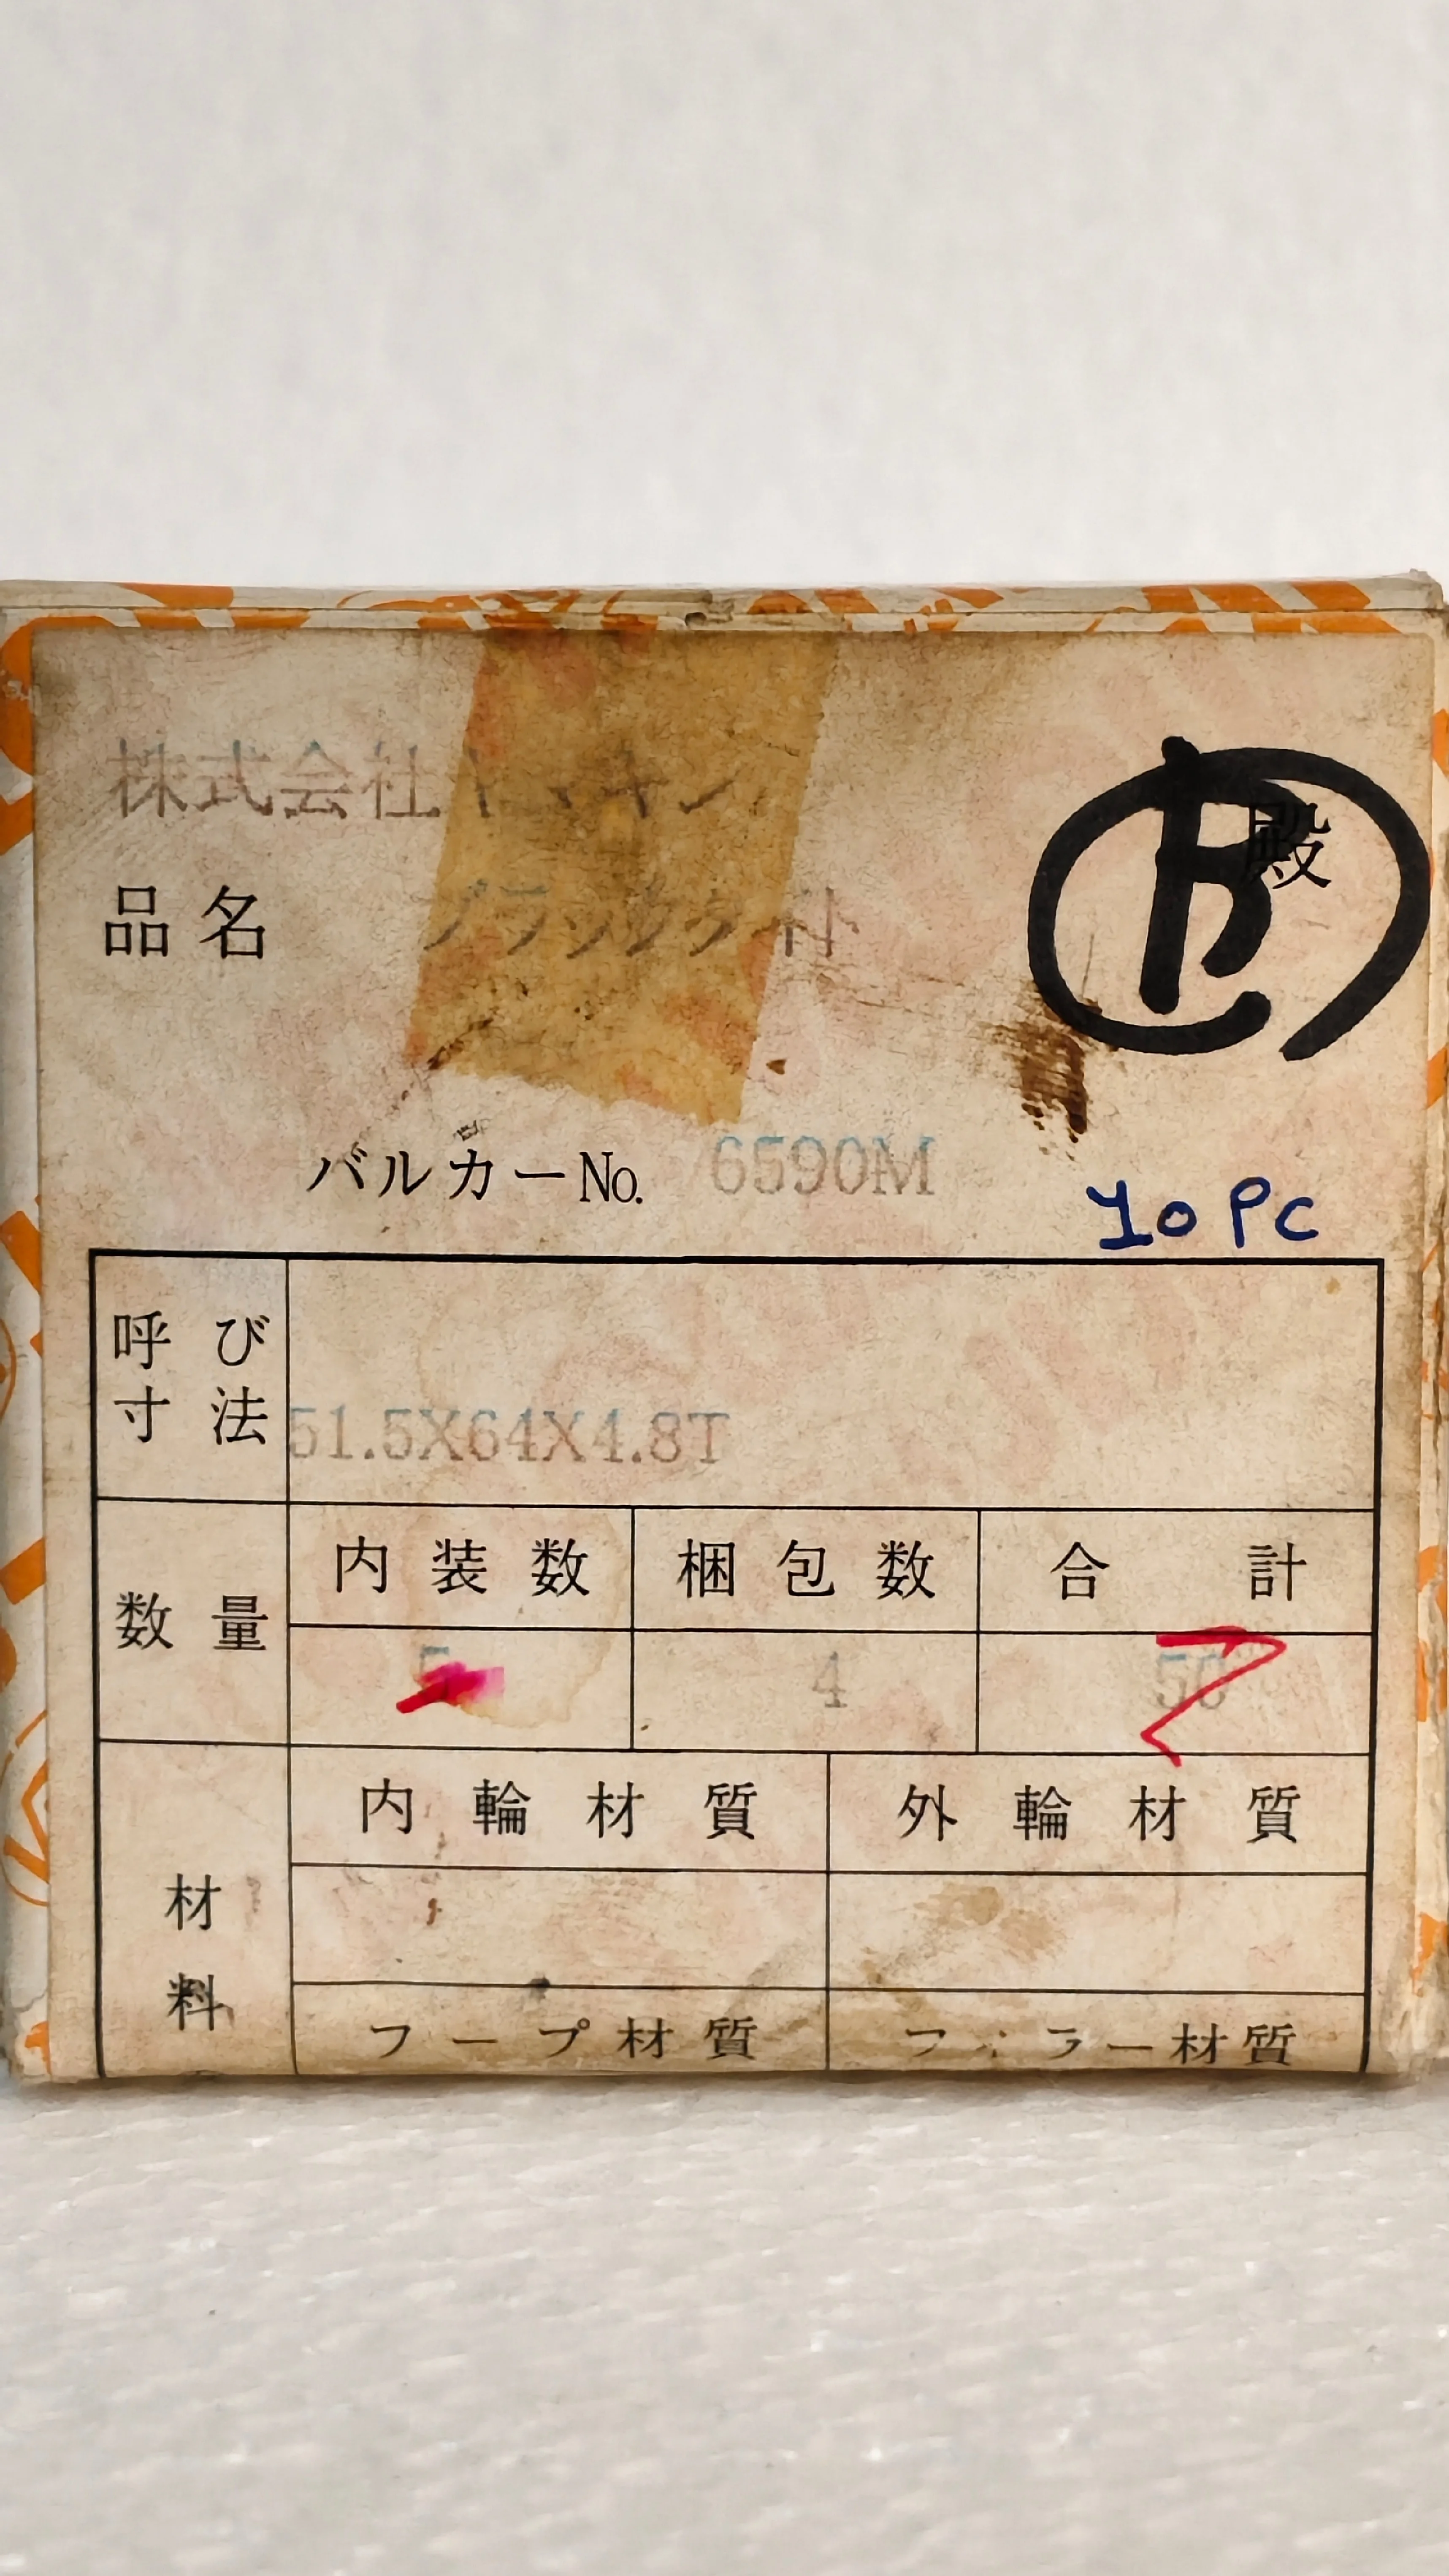 株式会社
殿
品名 ブラックタイト
バルカーNo. 6590M
10 PC
呼び寸法 51.5X64X4.8T
数量 内装数 梱包数 合計
5 4 50
内輪材質 外輪材質
材料
フープ材質 フィラー材質